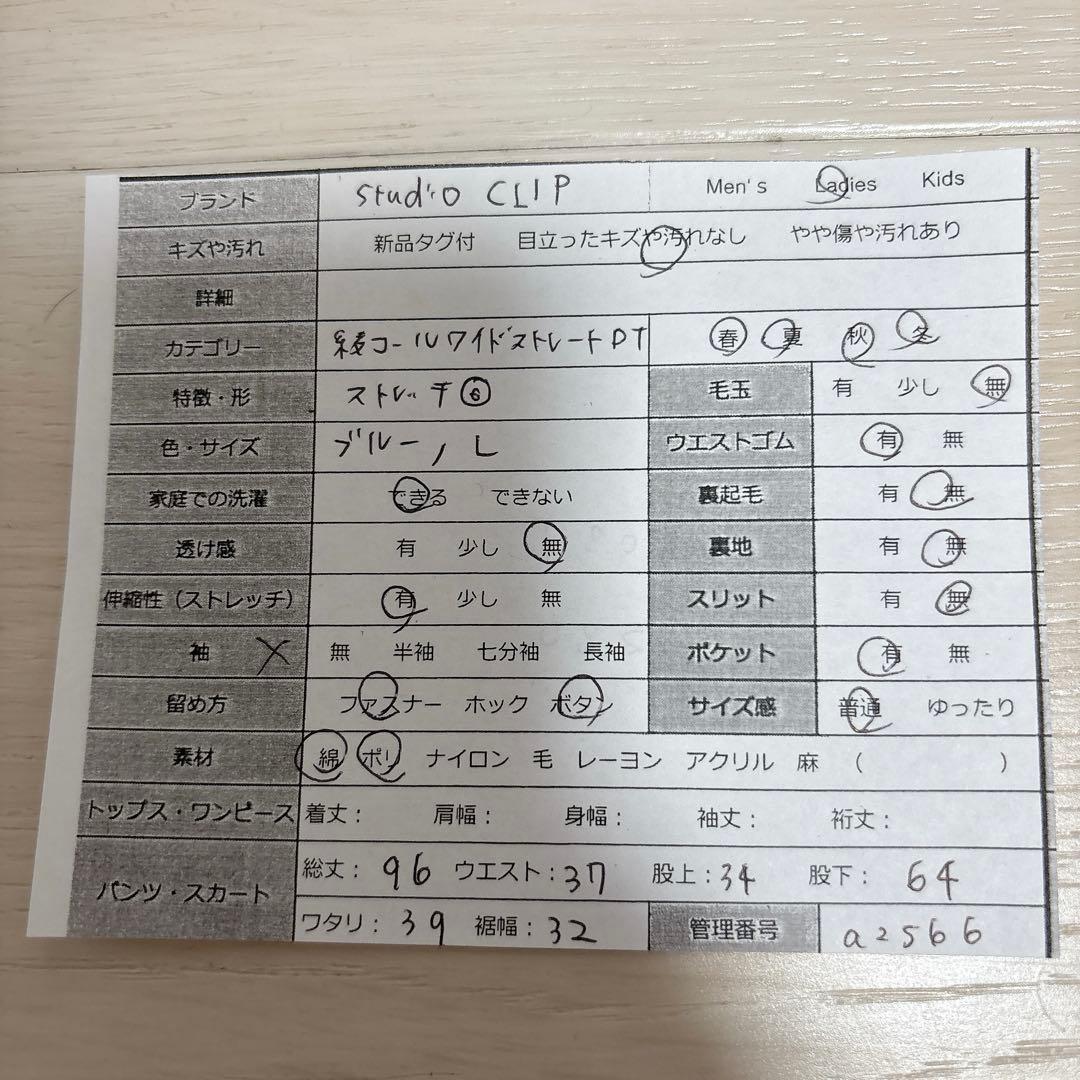 ブランド studio CLIP Men's Ladies Kids
キズや汚れ 新品タグ付 目立ったキズや汚れなし やや傷や汚れあり
詳細
カテゴリー 綾コールワイドストレートPT 春 夏 秋 冬
特徴・形 ストレッチ◎ 毛玉 有 少し 無
色・サイズ ブルー, L ウエストゴム 有 無
家庭での洗濯 できる できない 裏起毛 有 無
透け感 有 少し 無 裏地 有 無
伸縮性(ストレッチ) 有 少し 無 スリット 有 無
袖 × 無 半袖 七分袖 長袖 ポケット 有 無
留め方 ファスナー ホック ボタン サイズ感 普通 ゆったり
素材 綿 ポリ ナイロン 毛 レーヨン アクリル 麻 ( )
トップス・ワンピース 着丈: 肩幅: 身幅: 袖丈: 裄丈:
パンツ・スカート 総丈: 96 ウエスト: 37 股上: 34 股下: 64
ワタリ: 39 裾幅: 32 管理番号 a2566